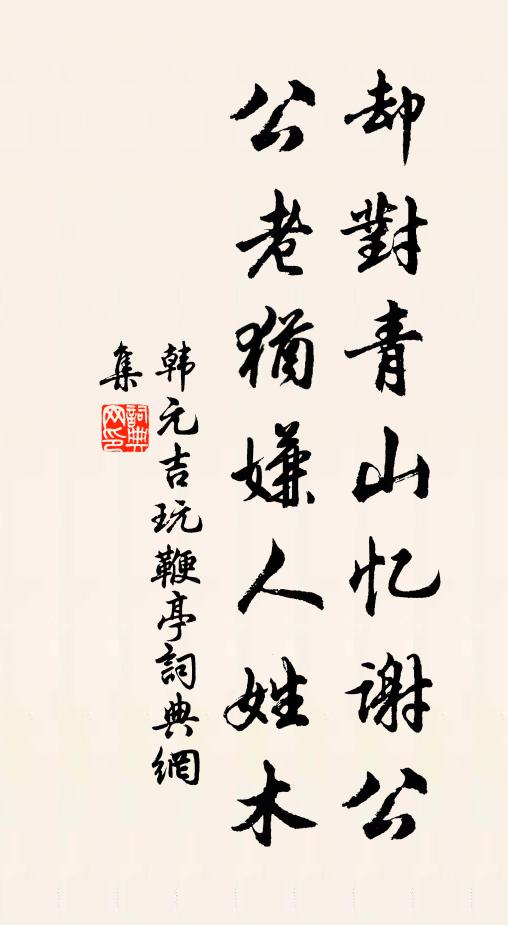 却對青山忆谢公
公老猶嫌人姓木
韩元吉玩鞭亭詞典網
集
詞典
网印